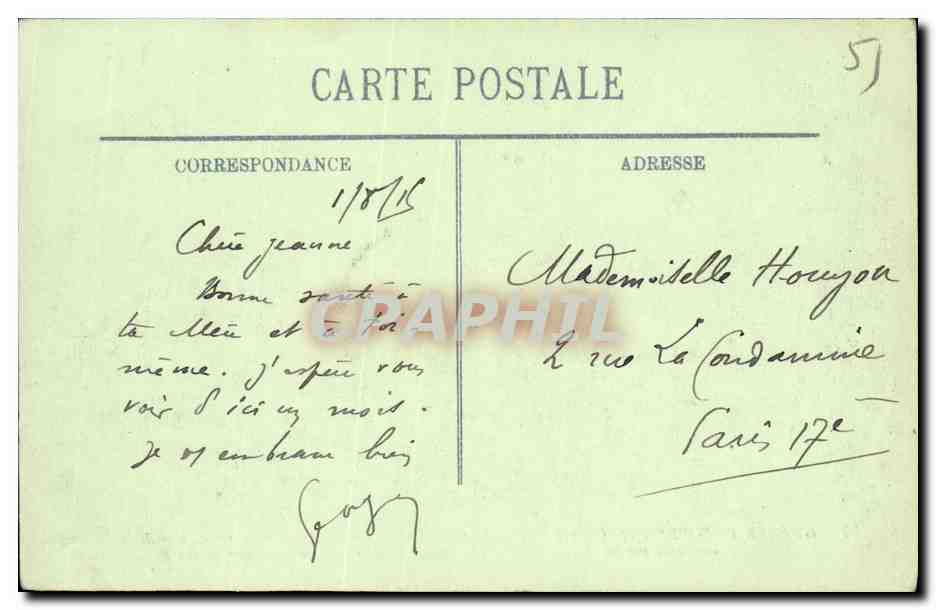 51
CARTE POSTALE
CORRESPONDANCE
1/8/15
Chère Jeanne
Bonne santé à
ta Mère et à toi-
même. J'espère vous
voir d'ici un mois.
Je vs embrasse bien
ADRESSE
Mademoiselle Houyou
2 rue La Condamine
Paris 17e
CPAPHIL